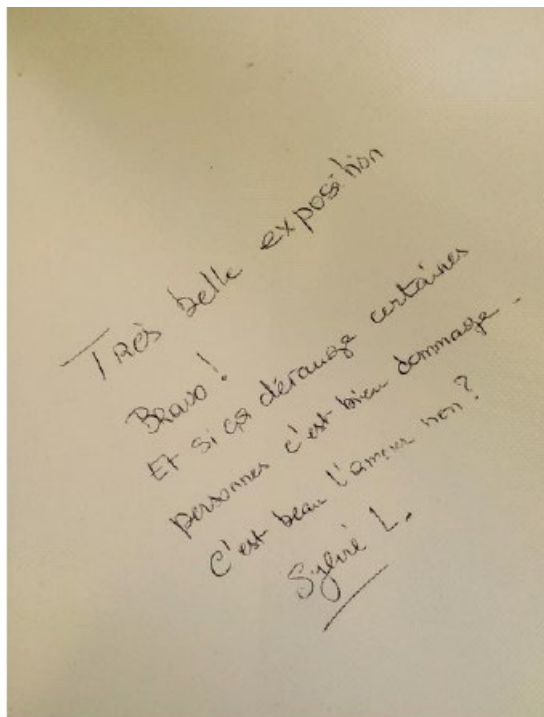 Très belle exposition
Bravo !
Et si ça dérange certaines
personnes c'est bien dommage.
C'est beau l'amour non ?
Sylvie L.